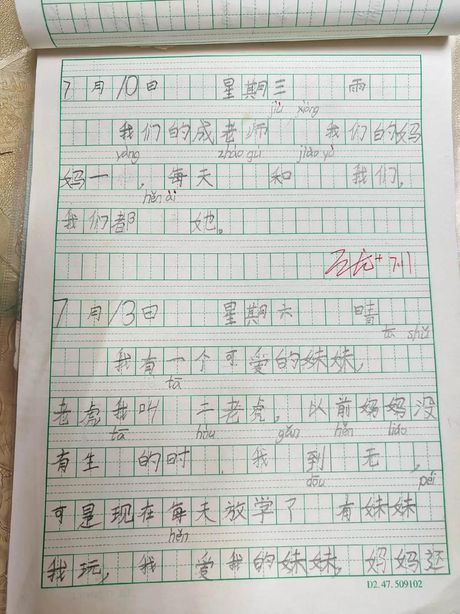 7月10日 星期三 雨
jiù xiàng
我们的成老师 我们的妈
yàng zhào gù jiào yù
妈一 ,每天 和 我们,
hěn ài
我们都 她。
7.11
7月13日 星期六 晴
tā shǔ
我有一个可爱的妹妹,
tā
老虎我叫 二老虎。以前妈妈没
tā hòu gǎn hěn liáo
有生 的时 ,我 到 无 ,
dōu péi
可是现在每天放学了 有妹妹
hěn
我玩,我 爱我的妹妹,妈妈还
D2.47.509102